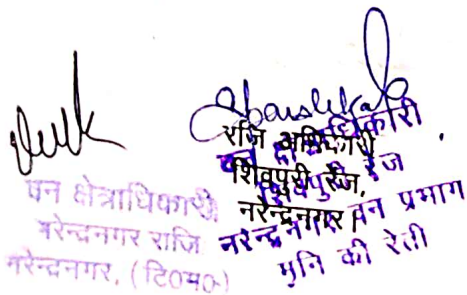 वन क्षेत्राधिकारी
नरेन्द्रनगर राजि
नरेन्द्रनगर, (टि०ग०)
राजि अधिकारी
शिवपुरी रेंज,
नरेन्द्रनगर।
वन क्षेत्राधिकारी
शिवपुरी रेंज
नरेन्द्रनगर वन प्रभाग
मुनि की रेती